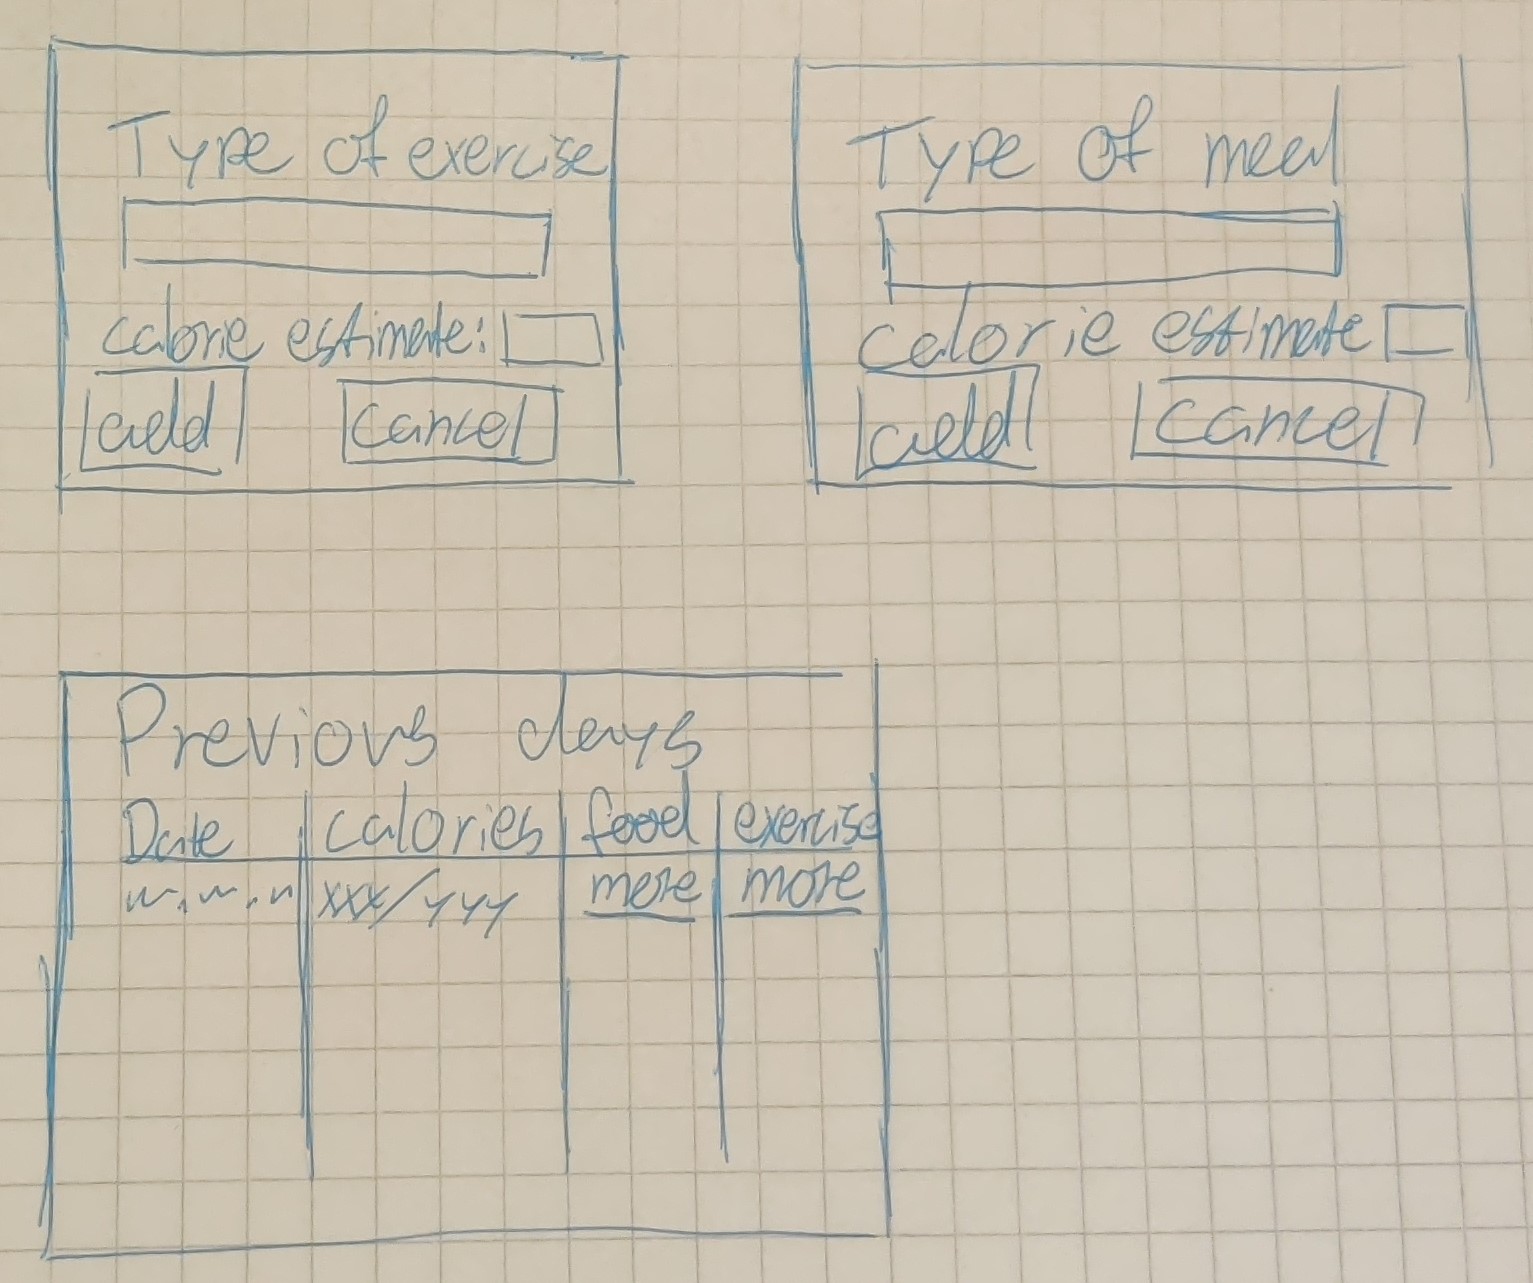 Type of exercise
calorie estimate:
add cancel
Type of meal
calorie estimate
add cancel
Previous days
Date calories food exercise
xxx/yyy more more